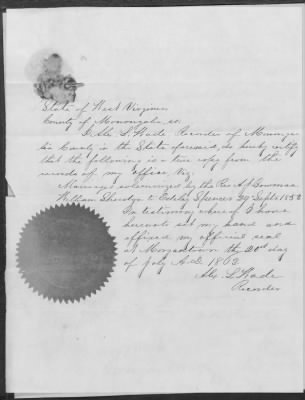 State of West Virginia
County of Monongalia ss.
I Alex L. Wade Recorder of Mononga-
lia County in the State aforesaid, do hereby certify
that the following is a true copy from the
records of my office Viz.
Marriage solemnized by the Rev A J Bowman
William to Spencer 29 Sept 1852
In testimony whereof I have
hereunto set my hand and
affixed my official seal
at Morgantown the 20th day
of July A.D. 186
Alex L. Wade
Recorder